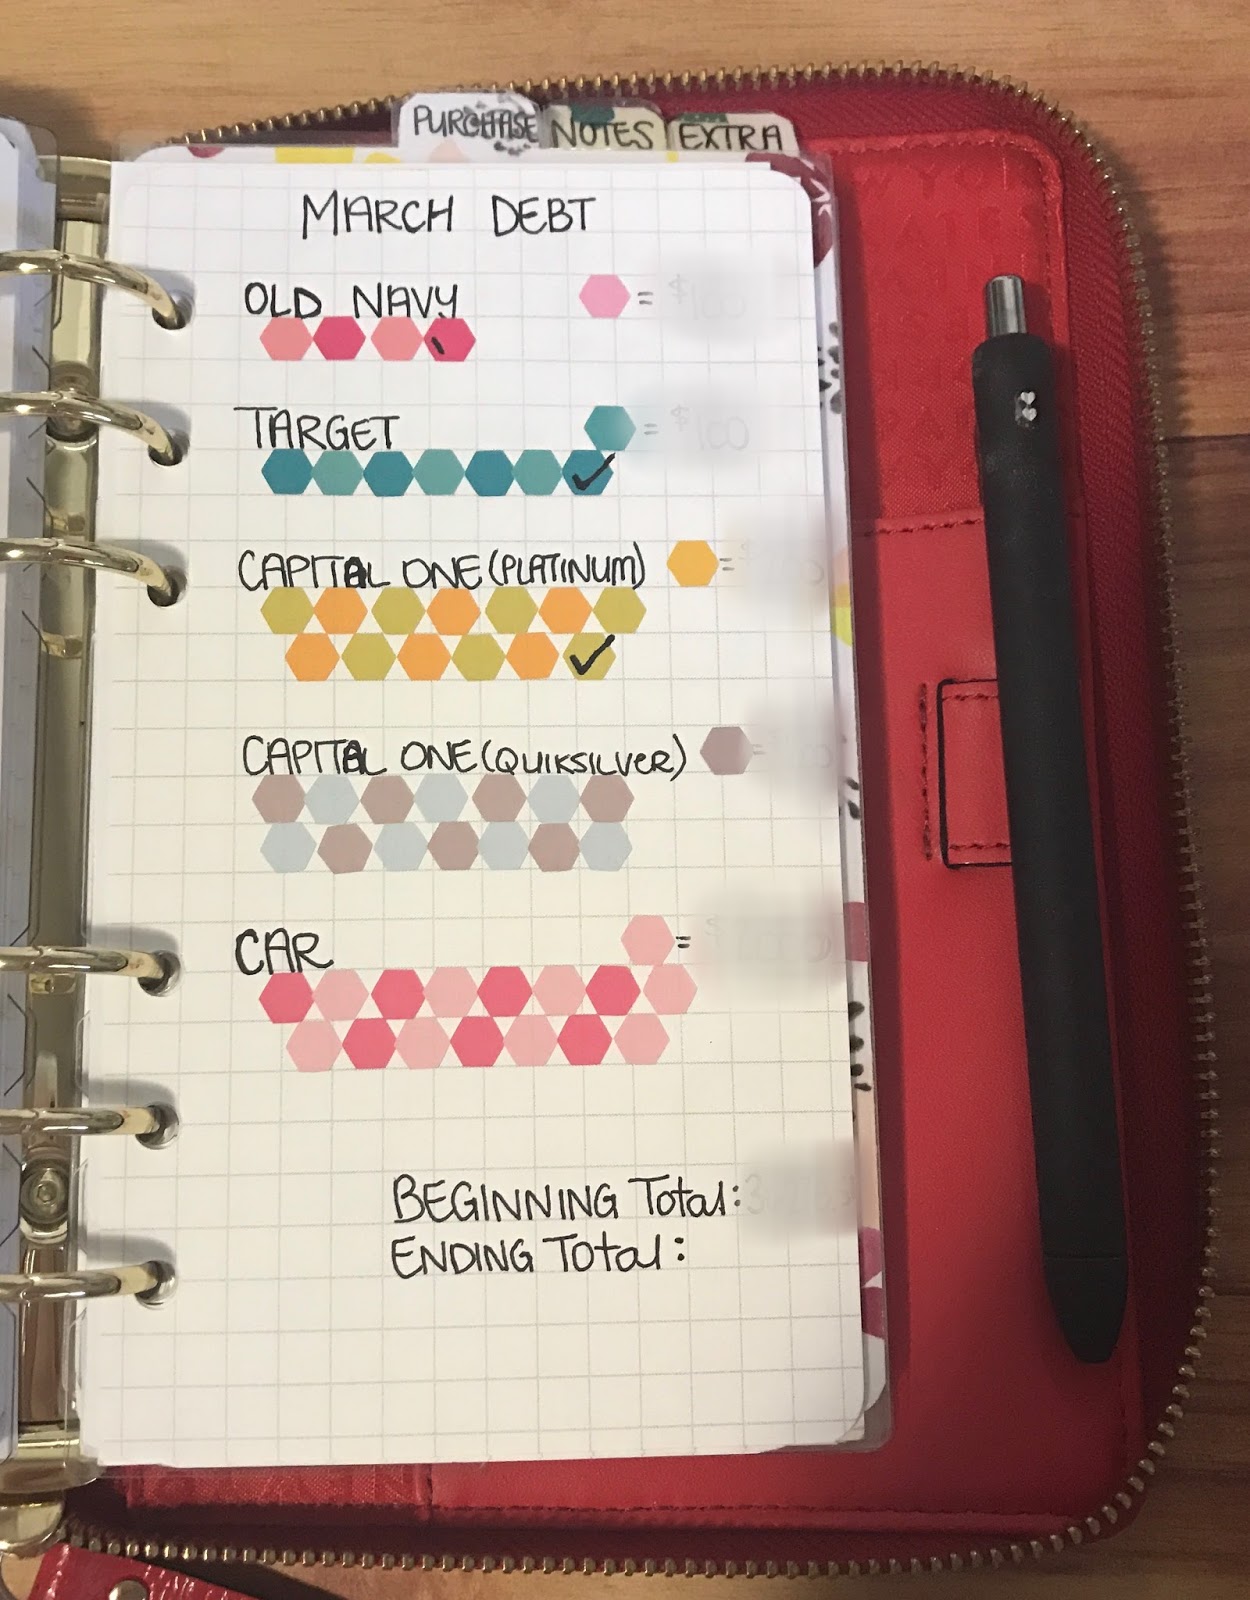 PURCHASE NOTES EXTRA
MARCH DEBT
OLD NAVY =
TARGET = $1.00
CAPITAL ONE (PLATINUM) =
CAPITAL ONE (QUIKSILVER) =
CAR =
BEGINNING Total:
ENDING Total: